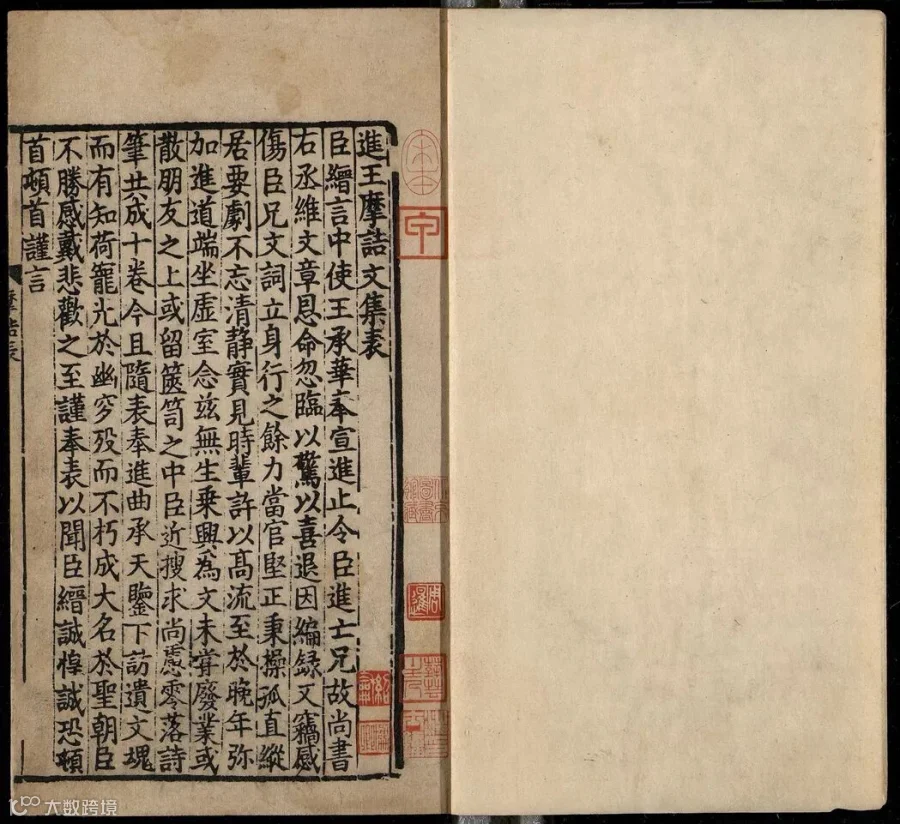 進王摩詰文集表
臣縉言中使王承華奉宣進止令臣進亡兄故尚書
右丞維文章恩命忽臨以驚以喜退因編録又竊感
傷臣兄文詞立身行之餘力當官堅正秉操孤直縱
居要劇不忘清静實見時輩許以髙流至於晚年弥
加進道端坐虚室念兹無生乗興為文未甞廢業或
散朋友之上或留篋笥之中臣近搜求尚慮零落詩
筆共成十卷今且隨表奉進曲承天鑒下訪遺文魂
而有知荷寵光於幽穸殁而不朽成大名於聖朝臣
不勝感戴悲歡之至謹奉表以聞臣縉誠惶誠恐頓
首頓首謹言
摩詰表
宋本
大数跨境